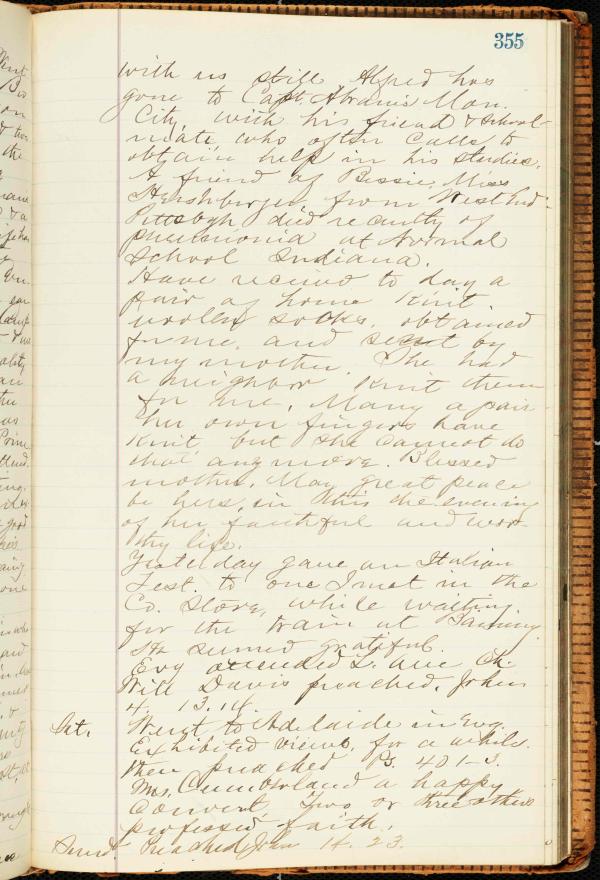 355
with us still Alfred has
gone to Capt. Abrams Mon.
City, with his friend & school-
mate who often calls to
obtain help in his studies.
A friend of Bessie, Miss
Hershberger from West End
Pittsbgh died recently of
pneumonia at Normal
School Indiana.
Have received to day a
pair of home Knit
wollen socks, obtained
for me, and sent by
my mother. She had
a neighbor Knit them
for me, Many a pair
her own fingers have
Knit but she cannot do
that any more. Blessed
mother, May great peace
be hers, in this the evening
of her faithful and wor-
thy life.
Yesterday gave an Italian
Test. to one I met in the
Co. Store, while waiting
for the train at
He seemed grateful.
Evg attended L. ave Ch.
Will Davis preached. John
4. 13.14.
Sat. Went to Adelaide in Evg.
Exhibited views, for a while.
then preached Ps. 40 1-3.
Mrs. Cumberland a happy
Convert Two or three others
professed faith.
Sund. Preached John 14. 23.